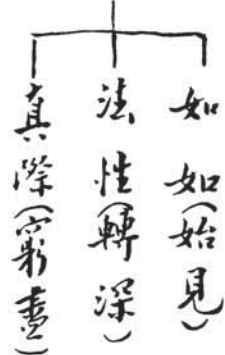 如如(始見)
法性(轉深)
真際(窮盡)